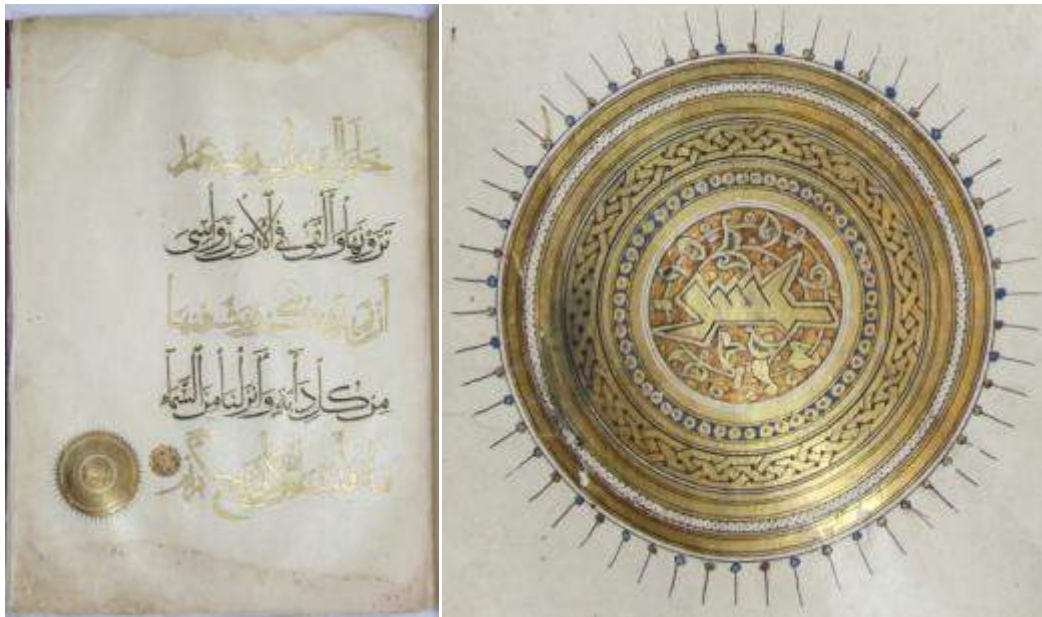 خلق السموات بغير عمد
تَرَوْنَهَا وَأَلْقَى فِي الْأَرْضِ رَوَاسِيَ
أن تميد بكم وبث فيها
مِن كُلِّ دَابَّةٍ وَأَنْزَلْنَا مِنَ السَّمَاءِ
ماء فأنبتنا فيها من كل زوج كريم